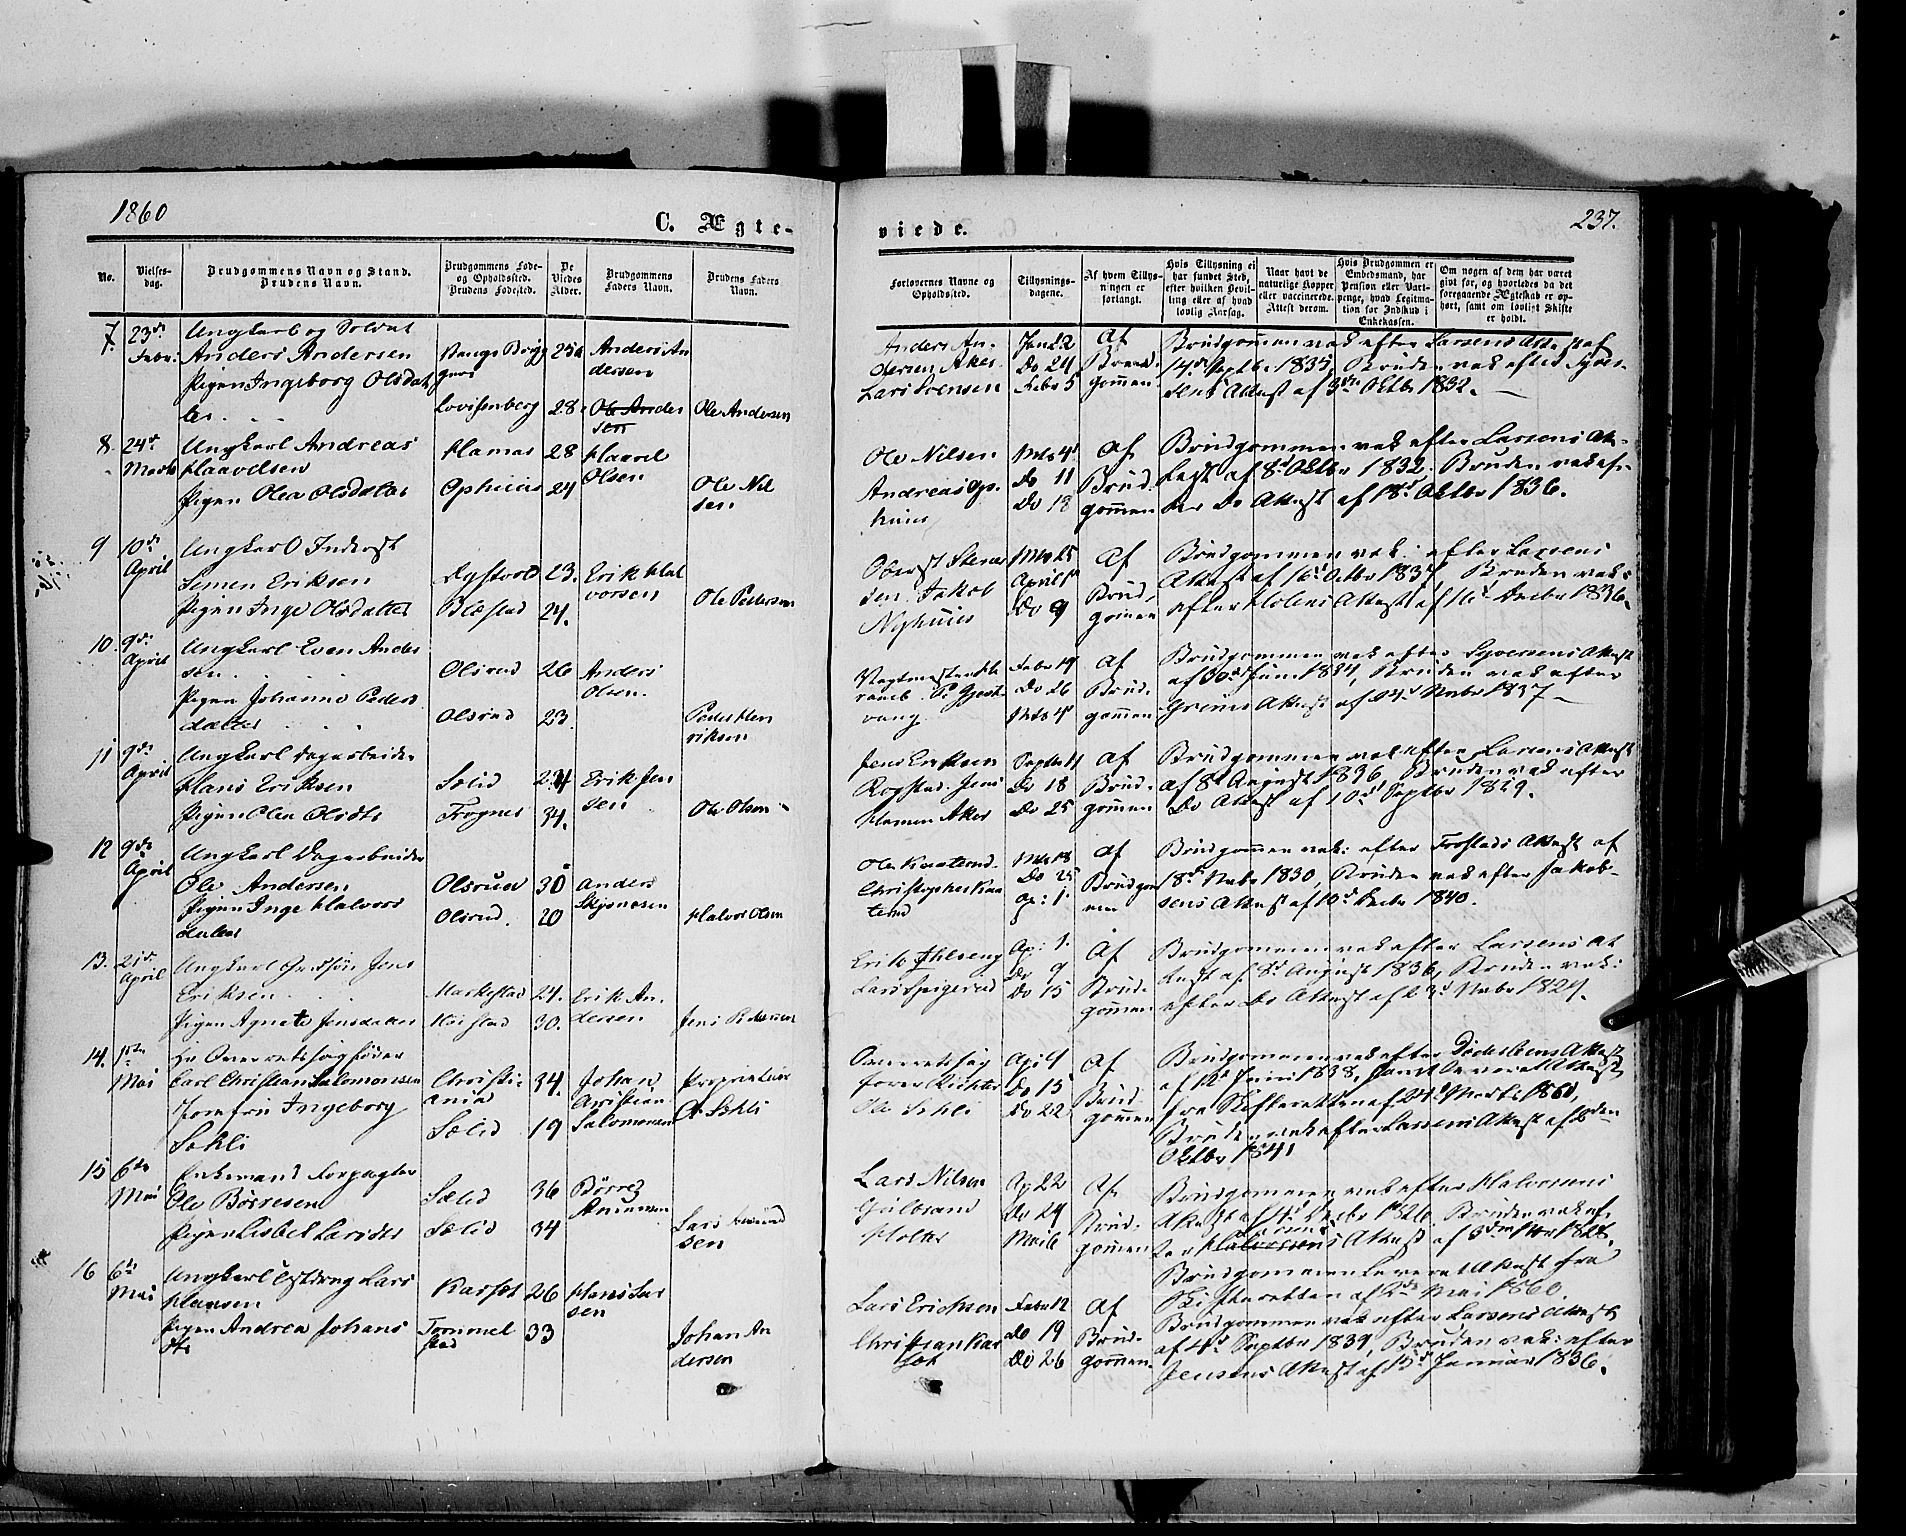 1860
C. Ægte-
viede.
237.
No.
Vielses-dag.
Brudgommens Navn og Stand.
Brudens Navn.
Brudgommens Føde-
og Opholdssted.
Brudens Fødested.
De
Viedes
Alder.
Brudgommens
Faders Navn.
Brudens Faders
Navn.
Forlovernes Navne og
Opholdssted.
Tillysnings-
dagene.
Af hvem Tillys-
ningen er
forlangt.
Hvis Tillysning ei
har fundet Sted,
efter hvilken Bevil-
ling eller af hvad
lovlig Aarsag.
Naar havt de
naturlige Kopper
eller vaccinerede.
Attest derom.
Hvis Brudgommen er
Embedsmand, har
Pension eller Vart-
penge, hvad Legitima-
tion for Indskud i
Enkekassen.
Om nogen af dem har været
gift før, og hvorledes da det
foregaaende Ægteskab er op-
hørt, samt om lovligt Skifte
er holdt.
7. 23de Febr:
Ungkarl og Soldat
Anders Andersen
Pigen Ingeborg Olsdat
ter
Lovisenberg
25
28
Anders An
dersen
Ole Ander
sen
Ole Andersen
Anders An-
dersen Aker
Lars Svensen
Jan 22
Do 29
Febr 5
Af
Brud
gommen
Brudgommen vak efter Larsens Attest af
14de Septbr 1835, Bruden vak efter
sens Attest af 3die Oktbr 1832.
8. 24de Marts
Ungkarl Andreas
Haavelsen
Pigen Olea Olsdatter
Hamar
Ophuus
28
24
Haavel
Olsen
Ole Nil
sen
Ole Nilsen
Andreas Op-
huus
Mts 4
Do 11
Do 18
Af
Brud
gommen
Brudgommen vak efter Larsens At-
test af 8de Oktbr 1832. Bruden vak ef-
ter Do Attest af 18de Oktbr 1836.
9 10de April
Ungkarl Inderst
Simen Eriksen
Pigen Inge Olsdatter
Blæstad
23.
24.
Erik Hal
vorsen
Ole Pedersen
sen. Jakob
Nyhuus
Mts 25
April 1
Do 9
Af
Brud,
gommen
Brudgommen vak: efter Larsens
Attest af 16de Octbr 1837, Bruden vak:
efter Holens Attest af 16de Decbr 1836.
10. 9de April
Ungkarl Even Ander
sen
Pigen Johanne Peders
datter
Olsrud
Olsrud
26
23.
Anders
Olsen.
Peder Hen
riksen
Febr 19
Do 26
Mts 4
Af
Brud-
gommen
Brudgommen vak efter Syversens Attest
af 30de Juni 1834, Bruden vak efter
Attest af Novbr 1837
11 9de April
Ungkarl Dagarbeider
Hans Eriksen
Pigen Olea Olsdtr
Sælid
Frogner
24
34.
Erik Jen
sen
Ole Olsen
Jens Eriksen
Rogstad. Jens
Hamar Aker
Septbr 11
Do 18
Do 25
Af
Brud-
gommen
Brudgommen vak efter Larsens Attest
af 8de August 1836, Bruden vak efter
Do Attest af 10de Septbr 1829.
12 9de April
Ungkarl Dagarbeider
Ole Andersen
Pigen Inge Halvors
datter
Olsrud
Olsrud.
30
20
Anders
Halvor Olsen
Ole Kvaterud
Christopher Kva
terud
Mts 18
Do 25
Ap: 1.
Af
Brudgom
men
Brudgommen vak: efter Frostads Attest af
18de Novbr 1830, Bruden vak efter Jakob-
sens Attest af 10de Decbr 1840.
13. 21de April
Ungkarl Jens
Eriksen
Pigen Agnete Jensdatter
Markestad
24.
30.
Erik An.
dersen
Jens Pedersen
Erik Ihlseng
Lars Spigerud
Ap: 1.
Do 9
Do 15
Af
Brud-
gommen
Brudgommen vak efter Larsens At
test af 8de August 1836, Bruden vak:
efter Do Attest af 23de Novbr 1829.
14. 1ste Mai
Hr Overretssagfører
Carl Christian Salomonsen
Jomfru Ingeborg
Sehli
Christi-
ania
Sælid
34.
19
Johan
Christian
Salomonsen
Proprietær
O Sehli
Overretssag
fører Richter
Ole Sehli
Apr 9
Do 15
Do 22
Af
Brud-
gommen
Brudgommen vak efter Dødeleins Attest
af 12te Juni 1838, samt leveret Attest
fra Skifteretten af 24de Marts 1860,
Bruden vak efter Larsens Attest af 6den
Oktbr 1841
15 6te Mai
Enkemand Forpagter
Ole Børresen
Pigen Lisbet Larsdtr
Sælid
Sælid
36
34
Børre
Lars
sen
Lars Nilsen
Gulbrand
Holter
Ap 22
Do 29
Mai 6
Af
Brud-
gommen
Brudgommen vak efter Halvorsens
Attest af Decbr 1826. Bruden vak ef-
ter Halvorsens Attest af 5te 1828.
Brudgommen leveret Attest fra
Skifteretten af 2den Mai 1860.
16 6te Mai
Ungkarl Lars
Hansen
Pigen Andrea Johans
dtr
Karset
Trommel
stad
26
33
Hans Lar
sen
Johan An
dersen
Lars Erichsen
Christian Kar
set
Febr 12
Do 19
Do 26
Af
Brud-
gommen.
Brudgommen vak efter Larsens Attest
af 4de Septbr 1839, Bruden vak: efter
Jensens Attest af 15de Januar 1836.